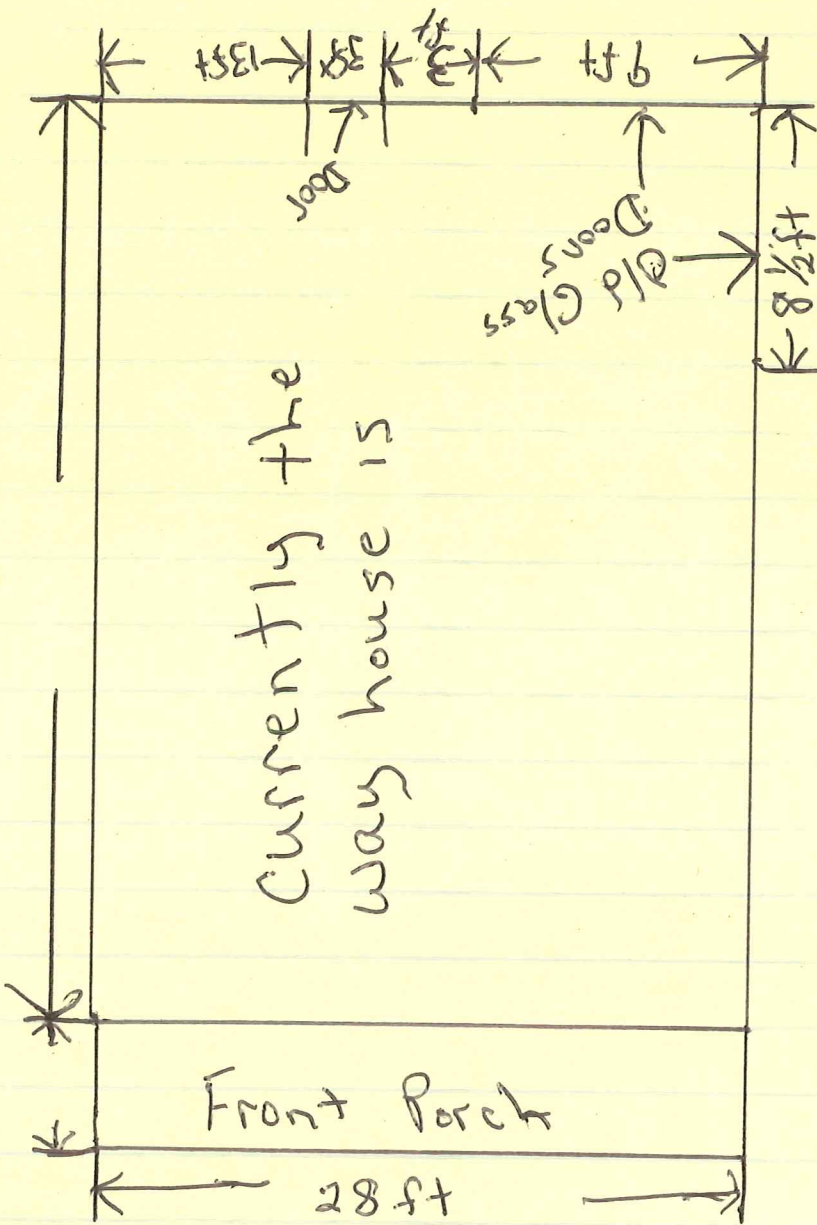 13ft
3ft
3
ft
9 ft
Door
Old Glass
Doors
8 ½ ft
Currently the
way house is
Front Porch
28 ft